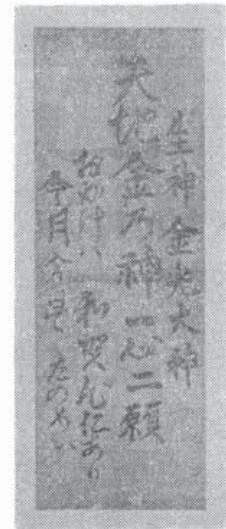 生神金光大神
天地金乃神一心ニ願
おかけハ和賀心仁あり
今月今日てたのめい